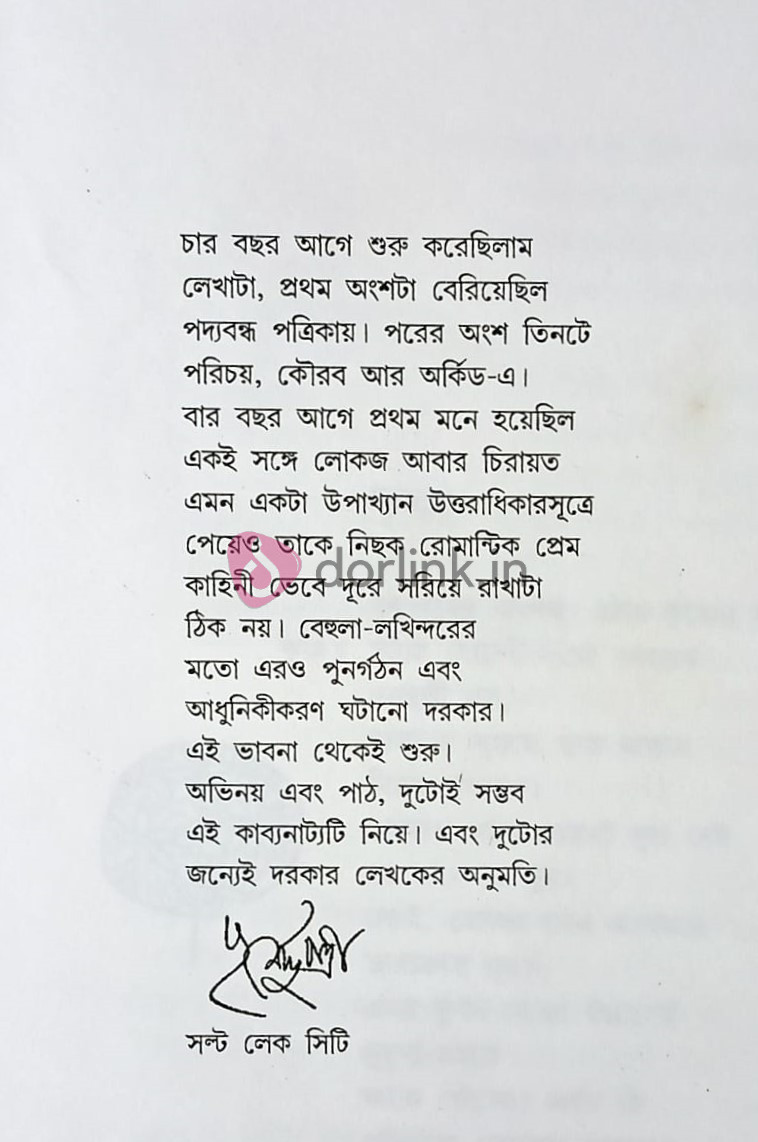 চার বছর আগে শুরু করেছিলাম
লেখাটা, প্রথম অংশটা বেরিয়েছিল
পদ্যবন্ধ পত্রিকায়। পরের অংশ তিনটে
পরিচয়, কৌরব আর অর্কিড-এ।
বার বছর আগে প্রথম মনে হয়েছিল
একই সঙ্গে লোকজ আবার চিরায়ত
এমন একটা উপাখ্যান উত্তরাধিকারসূত্রে
পেয়েও তাকে নিছক রোমান্টিক প্রেম
dorlink.in
কাহিনী ভেবে দূরে সরিয়ে রাখাটা
ঠিক নয়। বেহুলা-লখিন্দরের
মতো এরও পুনর্গঠন এবং
আধুনিকীকরণ ঘটানো দরকার।
এই ভাবনা থেকেই শুরু।
অভিনয় এবং পাঠ, দুটোই সম্ভব
এই কাব্যনাট্যটি নিয়ে। এবং দুটোর
জন্যেই দরকার লেখকের অনুমতি।
সল্ট লেক সিটি